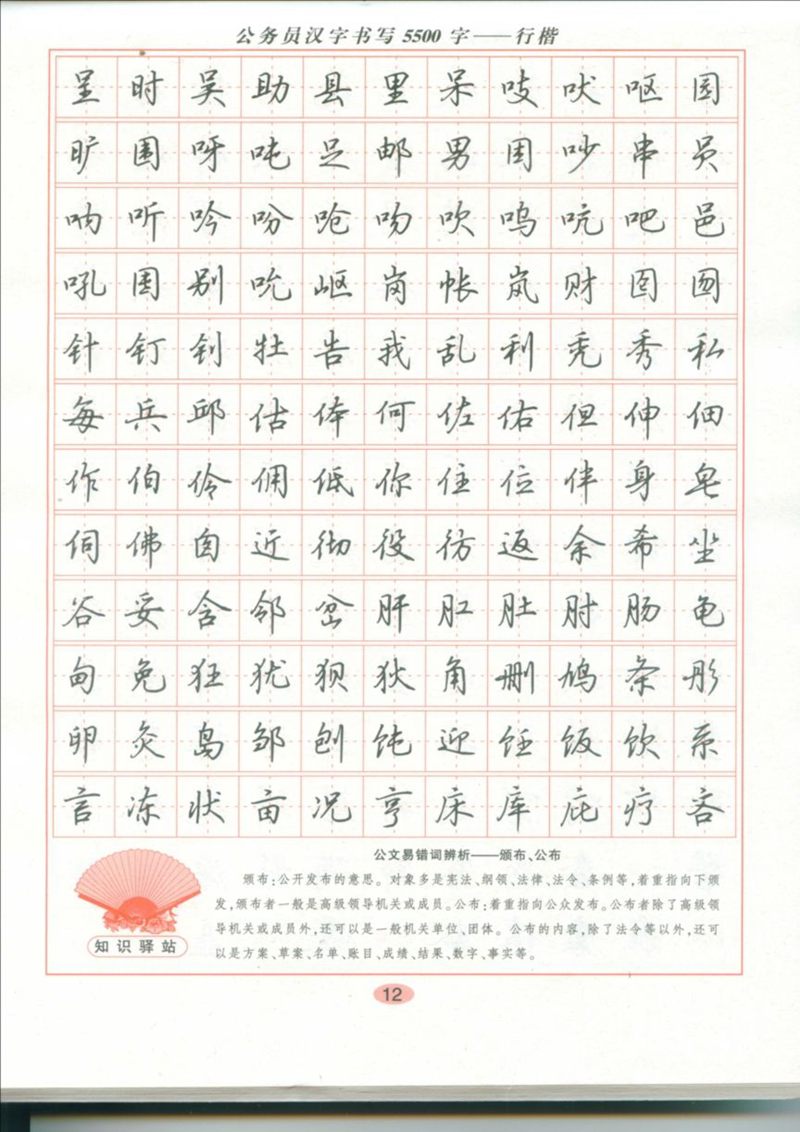 公务员汉字书写5500字——行楷
呈时吴助县里呆吱吠呕园
旷围呀吨足邮男困吵串员
呐听吟吩呛吻吹呜吭吧邑
吼国别吮岖岗帐岚财囵囫
针钉钊牡告我乱利秃秀私
每兵邱估体何佐佑但伸佃
作伯伶佣低你住位伴身皂
伺佛囱近彻役彷返余希坐
谷妥含邻岔肝肛肚肘肠龟
甸免狂犹狈狄角删鸠条彤
卵灸岛邹刨饨迎饪饭饮系
言冻状亩况亨床库庇疗吝
公文易错词辨析——颁布、公布
颁布:公开发布的意思。对象多是宪法、纲领、法律、法令、条例等,着重指向下颁
发,颁布者一般是高级领导机关或成员。公布:着重指向公众发布。公布者除了高级领
导机关或成员外,还可以是一般机关单位、团体。公布的内容,除了法令等以外,还可
以是方案、草案、名单、账目、成绩、结果、数字、事实等。
知识驿站
12